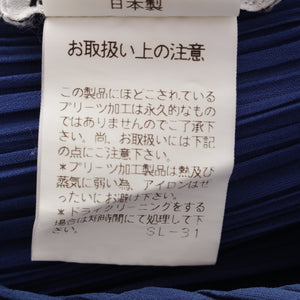 日本製
お取扱い上の注意
この製品にほどこされている
プリーツ加工は永久的なもの
ではありませんのでご了承下
さい。尚、お取扱いには下記
の点にご注意下さい。
＊プリーツ製品は熱及び
蒸気に弱い為、アイロンはぜ
ったいにお避け下さい。
＊ドライクリーニングをする
場合は短時間にて処理して下
さい。
SL-31